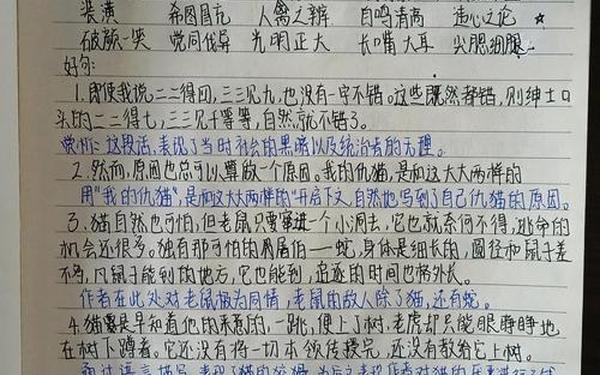 装潢 希图冒充 人禽之辨 自鸣清高 违心之论 ☆
破颜一笑 党同伐异 光明正大 长嘴大耳 尖腮细腿
好句：
1.即使我说二二得四，三三见九，也没有一字不错。这些既然都错，则绅士口
头的二二得七，三三见千等等，自然就不错了。
赏析：这段话，表现了当时社会的黑暗以及统治者的无理。
2.然而，原因也总可以算做一个原因。我的仇猫，是和这大大两样的
用"我的仇猫"，是和这大大两样的"开启下文，自然地写到了自己仇猫的原因。
3.猫自然也可怕，但老鼠只要窜进一个小洞去，它也就奈何不得，逃命的
机会还很多。独有那可怕的屠伯——蛇，身体是细长的，圆径和鼠子差
不多，凡鼠子能到的地方，它也能到，追逐的时间也格外长。
作者在此处对老鼠极为同情，老鼠的敌人除了猫，还有蛇。
4.猫是早知道他的来意的，一跳，便上了树，老虎却只能眼睁睁地
在树下蹲着。它还没有将一切本领传授完，还没有教给它上树。